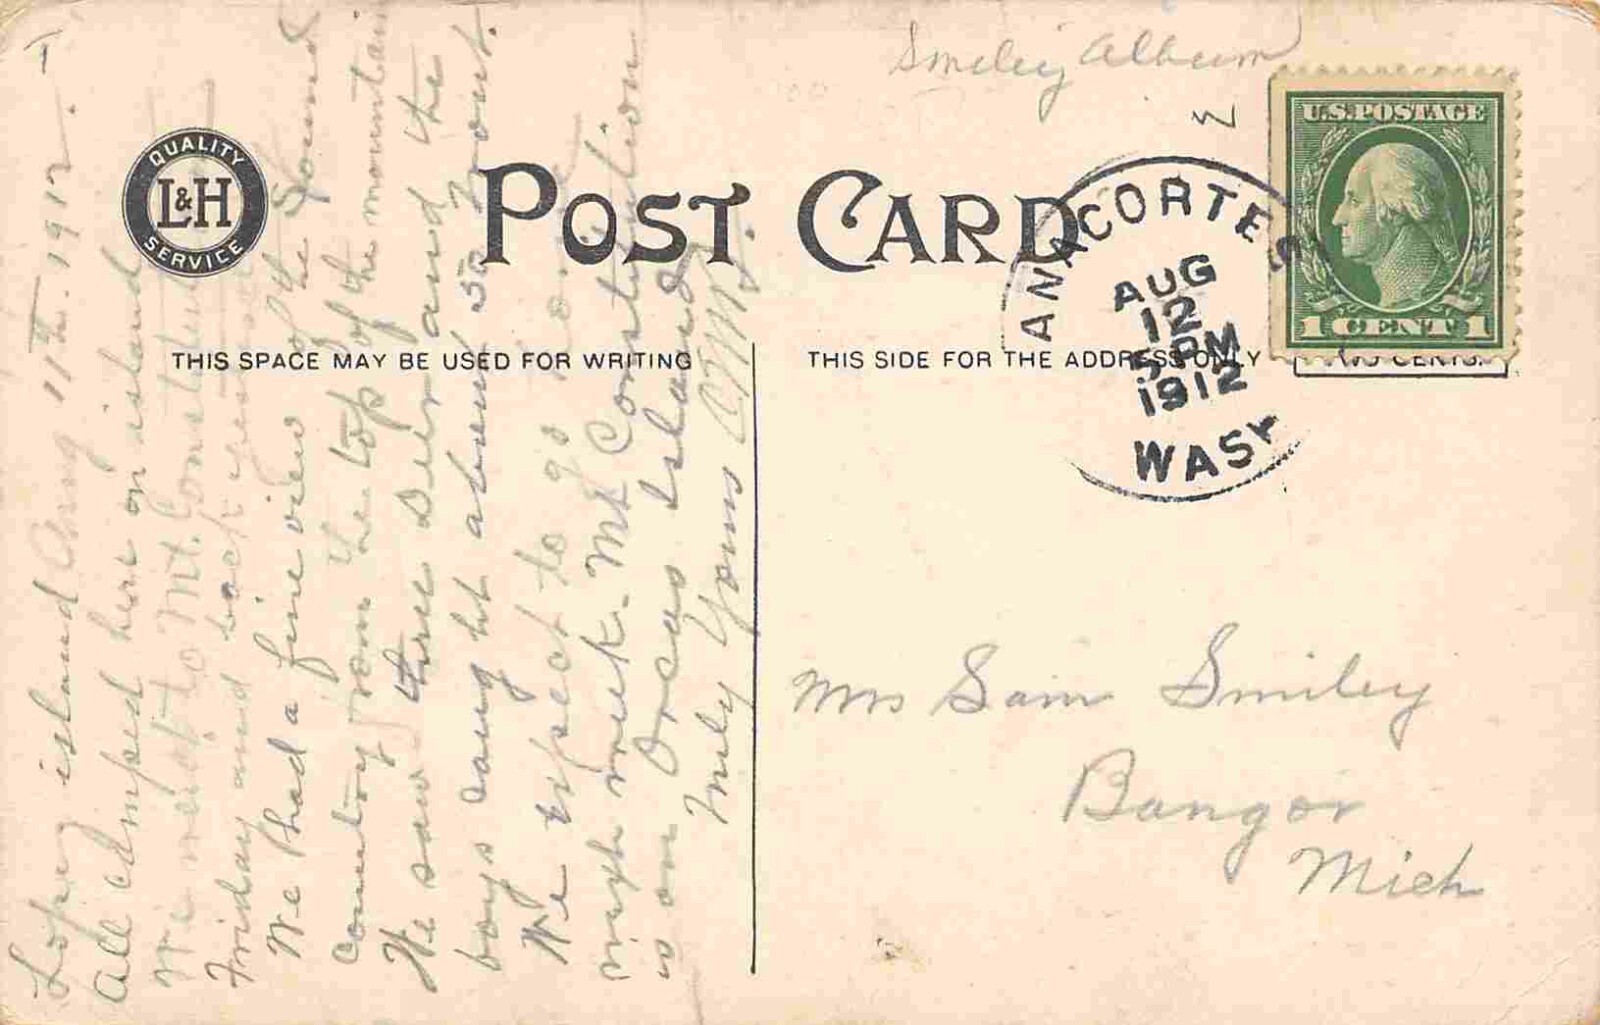 Smiley Album
U.S. POSTAGE
1 CENT 1
QUALITY
L&H
SERVICE
POST CARD
ANACORTES
AUG
12
5 PM
1912
WASH
THIS SPACE MAY BE USED FOR WRITING
THIS SIDE FOR THE ADDRESS ONLY
Lopez island Aug 11th. 1912.
All camped here on island
We went to Mt. Constitution
Friday and back yesterday
We had a fine view of the Sound
Country from the top of the mountain
We saw three Deer and the
boys caught about 50 trout.
We expect to go home
next week. Mt Constitution
is on Orcas Island
Truly Yours
Mrs Sam Smiley
Bangor
Mich